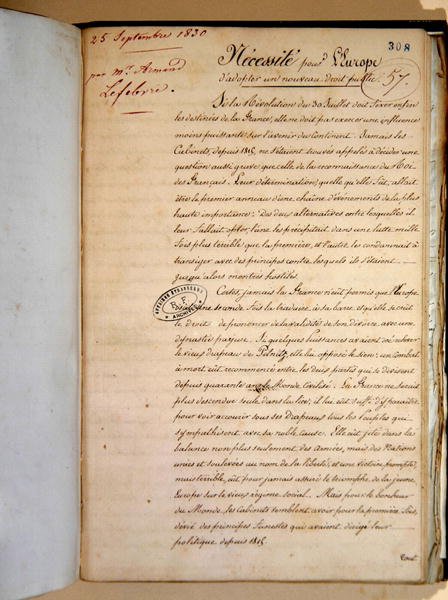 25 Septembre 1830
308
par Mr. Armand
Lefebvre.
57.
Nécessité pour L'Europe
d'adopter un nouveau droit public.
Si la Révolution du 30 Juillet doit fixer enfin
les destinées de la France, elle ne doit pas exercer une influence
moins puissante sur l'avenir du Continent. Jamais les
Cabinets, depuis 1815, ne s'étaient trouvés appelés à décider une
question aussi grave que celle de la reconnaissance du Roi
des Français. Leur détermination, quelle qu'elle fût, allait
être le premier anneau d'une chaîne d'événements de la plus
haute importance: Des deux alternatives entre lesquelles il
leur fallait opter, l'une les précipitait dans une lutte mille
fois plus terrible que la première, et l'autre les condamnait à
transiger avec des principes contre lesquels ils s'étaient
jusqu'alors montrés hostiles.
Certes, jamais la France n'eût permis que l'Europe
une seconde fois la traduisît à sa barre, et qu'elle se crût
le droit de prononcer de la validité de son divorce avec une
dynastie parjure. Si quelques Puissances avaient osé relever
le vieux drapeau de Pilnitz, elle lui opposait le sien: un combat
à mort eût recommencé entre les deux partis qui se divisent
depuis quarante ans le Monde civilisé. La France ne serait
plus descendue seule dans la lice; il lui eût suffi d'y paraître
pour voir accourir sous ses Drapeaux tous les Peuples qui
sympathisent avec sa noble cause. Elle eût jeté dans la
balance non plus seulement des Armées, mais des Nations
unies et soulevées au nom de la liberté, et une victoire prompte,
mais terrible, eût pour jamais assuré le triomphe de la jeune
Europe sur le vieux régime social. Mais pour le bonheur
du Monde, les Cabinets semblent avoir pour la première fois,
dévié des principes funestes qui avaient dirigé leur
politique depuis 1815.
Tout
AFFAIRES ÉTRANGÈRES
R.F.
ARCHIVES